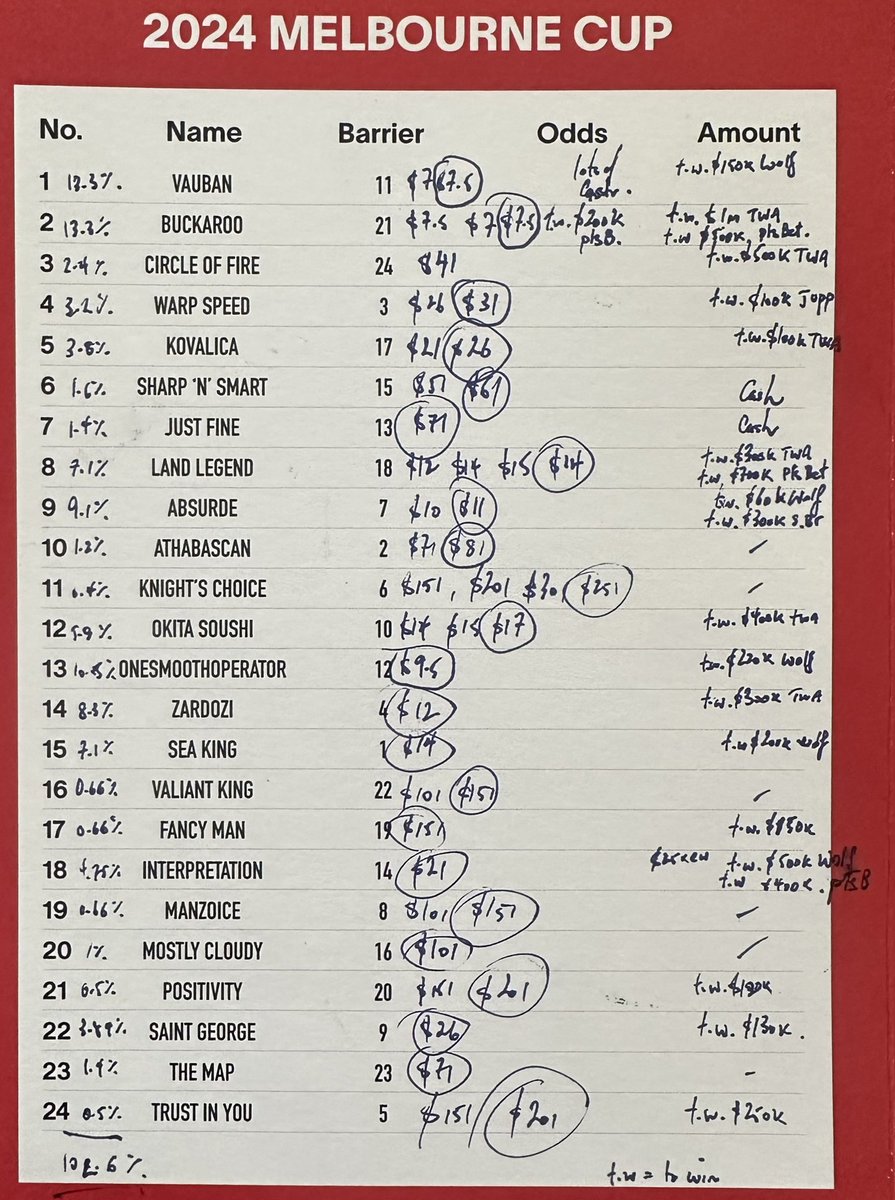 2024 MELBOURNE CUP
No. Name Barrier Odds Amount
1 13.3%. VAUBAN 11 $7 $7.5 lots of Cash. t.w. $150K Wolf
2 13.3% BUCKAROO 21 $7.5 $7 $7.5 t.w. $200K ptsB. t.w. $1m TWA
t.w $500K, ptsBet.
3 2.4% CIRCLE OF FIRE 24 $41 t.w. $500K TWA
4 3.2% WARP SPEED 3 $26 $31 t.w. $100K Topp
5 3.8% KOVALICA 17 $21 $26 t.w. $100K TWA
6 1.6% SHARP 'N' SMART 15 $51 $61 Cash
7 1.4% JUST FINE 13 $71 Cash
8 7.1% LAND LEGEND 18 $12 $14 $15 $14 t.w. $300K TWA
t.w. $700K Pts Bet
9 9.1% ABSURDE 7 $10 $11 t.w. $60K Wolf
t.w. $300K
10 1.2% ATHABASCAN 2 $71 $81
11 0.4% KNIGHT'S CHOICE 6 $151, $201 $251
12 5.9% OKITA SOUSHI 10 $14 $15 $17 t.w. $400K twa
13 10.5% ONESMOOTHOPERATOR 12 $9.5 t.w. $220K Wolf
14 8.3% ZARDOZI 4 $12 t.w. $300K TWA
15 7.1% SEA KING 1 $14 t.w $200K wolf
16 0.66% VALIANT KING 22 $101 $151
17 0.66% FANCY MAN 19 $151 t.w. $150K
18 4.75% INTERPRETATION 14 $21 $25K EW t.w. $500K Wolf
t.w $400K. ptsB
19 0.66% MANZOICE 8 $101 $151
20 1% MOSTLY CLOUDY 16 $101
21 0.5% POSITIVITY 20 $151 $201 t.w. $100K
22 3.89% SAINT GEORGE 9 $26 t.w. $130K.
23 1.4% THE MAP 23 $71 -
24 0.5% TRUST IN YOU 5 $151 $201 t.w. $250K
102.6%.
t.w = to win